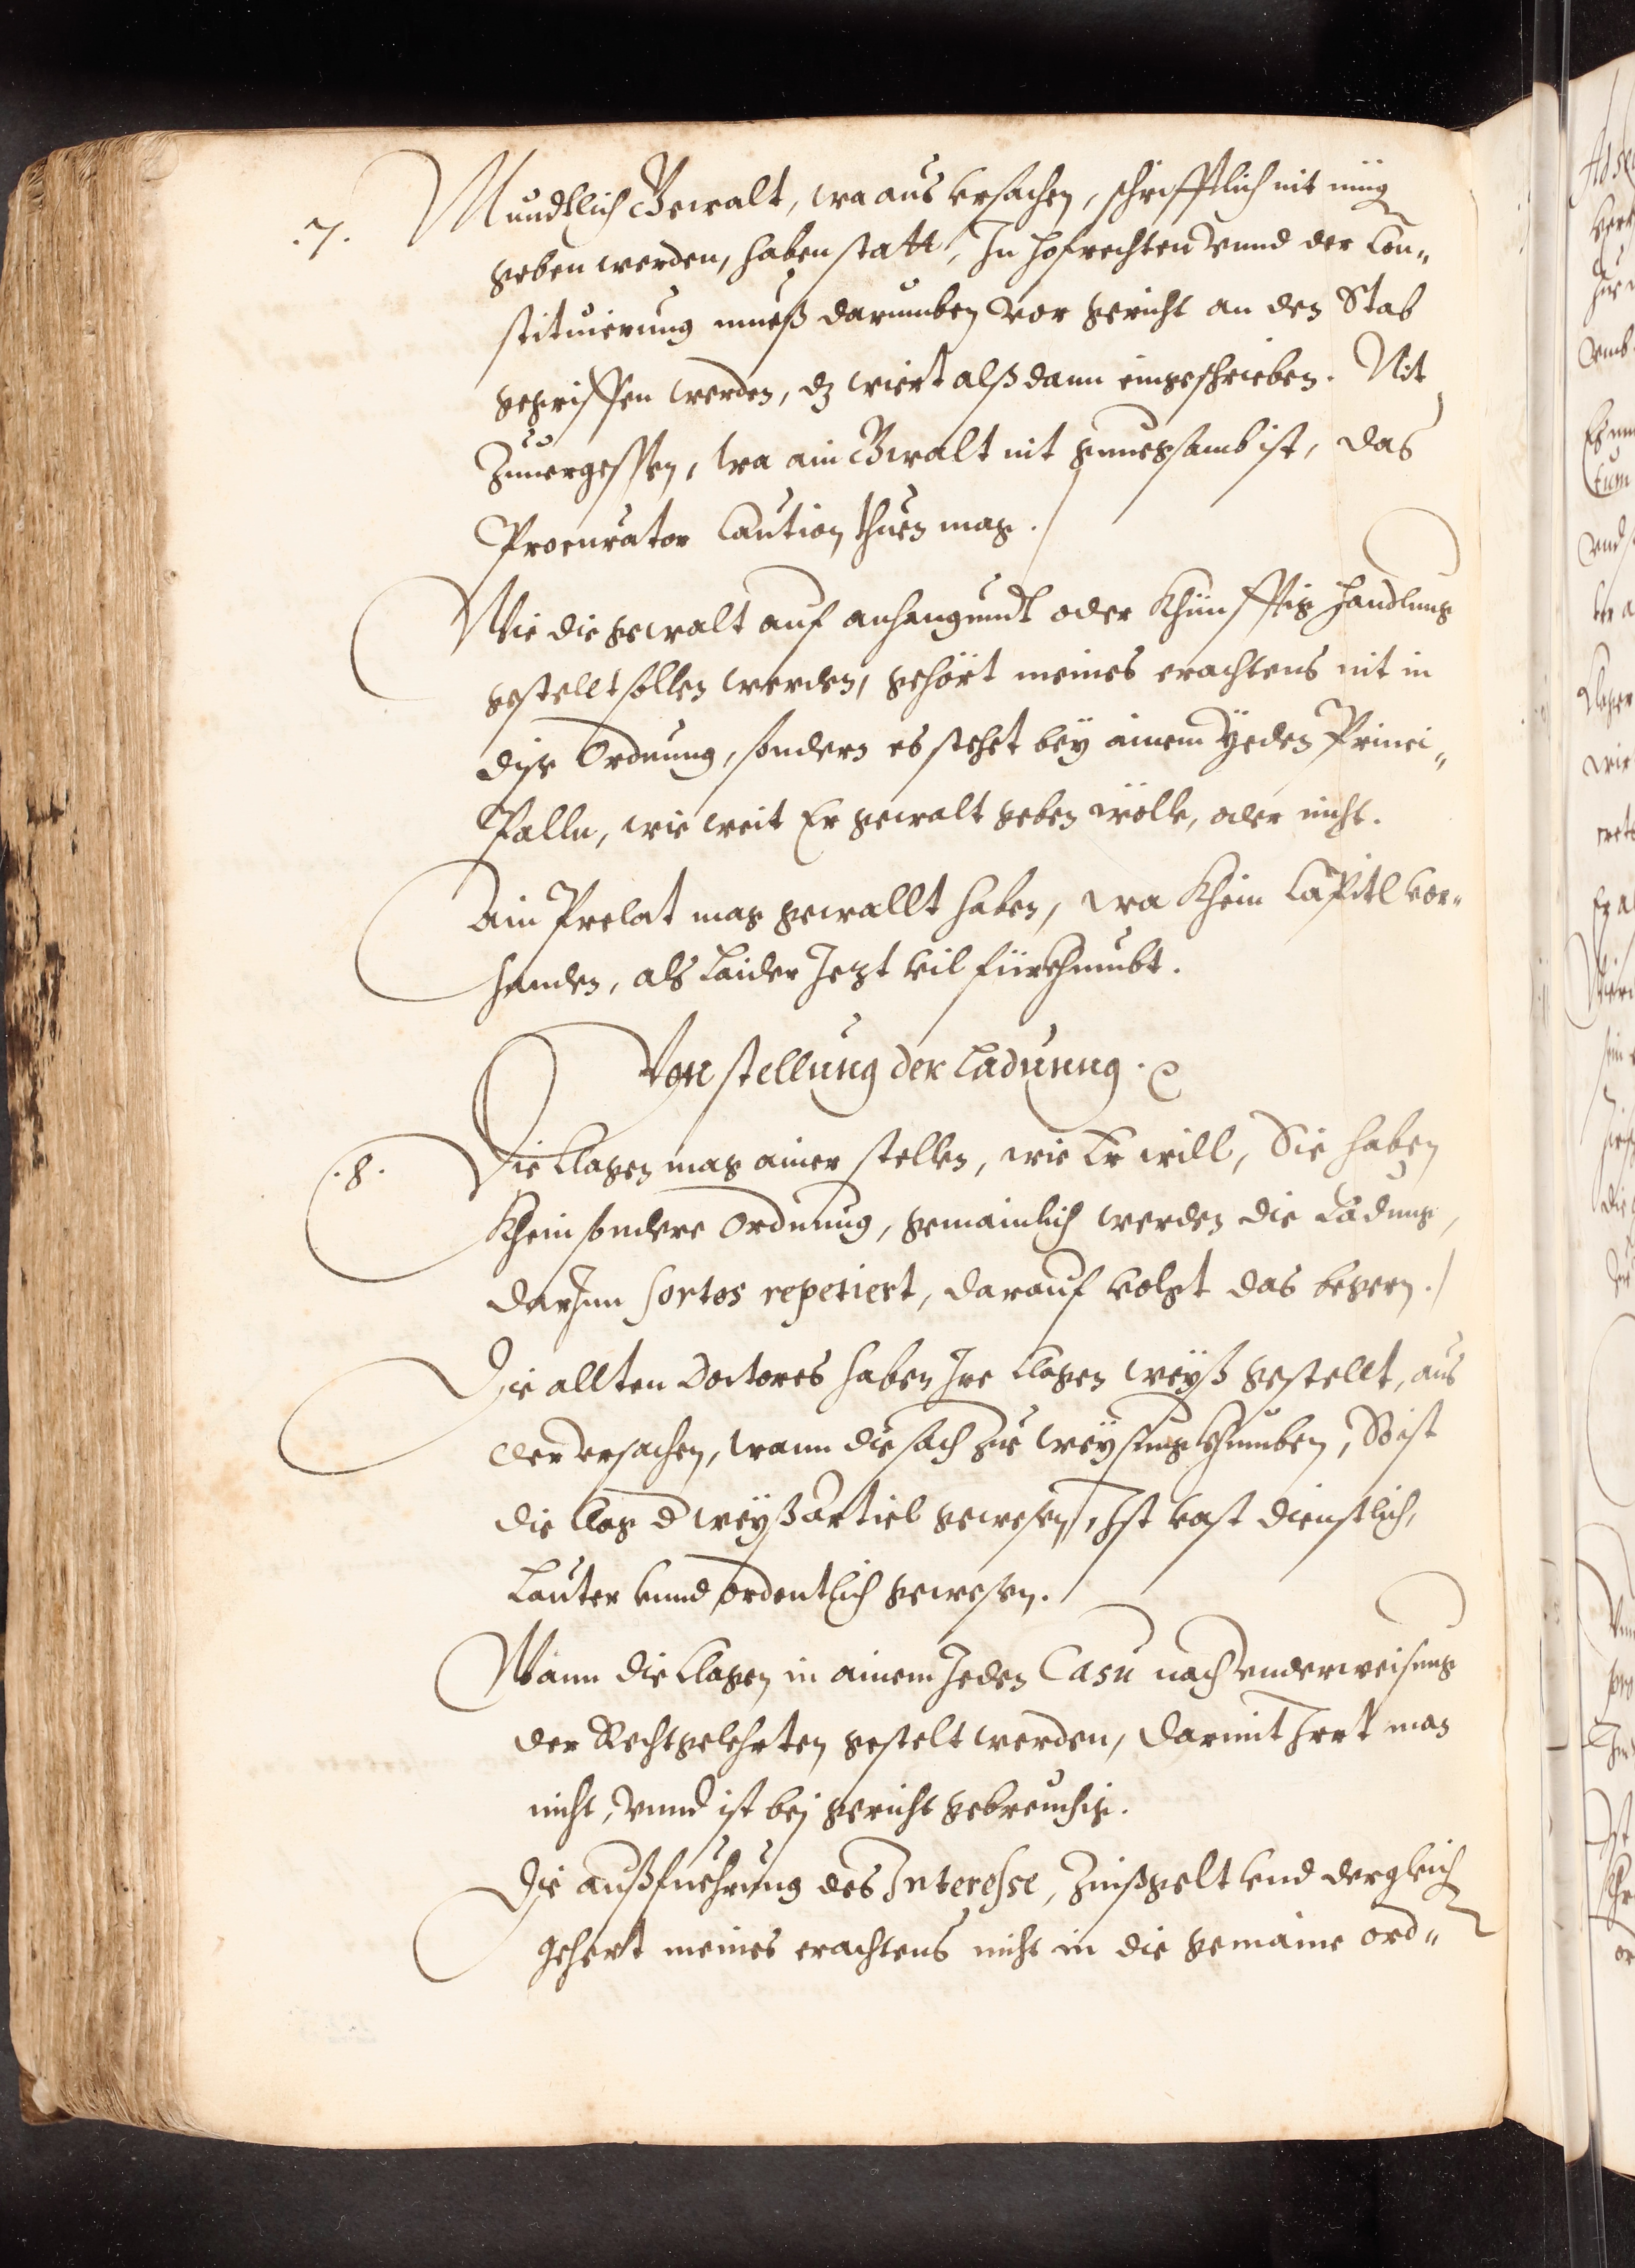 .7. Mundtlich Gewalt, wa aus vrsachen, schrifftlich nit müg
geben werden, haben statt, In hofrechten vnnd der Con„
stituierung mueß darumben vor gericht an den Stab
gegriffen werden, dz wiert alß dann eingeschrieben. Nit
Zuuergessen, wa ain Gwalt nit gnuegsamb ist, das
Procurator Caution thuen mag.
Wie die gewalt auf anhangundt oder khünfftig handlung
gestellt sollen werden, gehört meines erachtens nit in
dise Ordnung, sondern es stehet bey ainem Yeden Princi„
Palln, wie weit Er gewalt geben wölle, oder nicht.
Ain Prelat mag gewallt haben, wa khein Capitl vor„
handen, als laider Jezt vil fürkhumbt.
Von stellung der ladunng.
.8. Die Clagen mag ainer stellen, wie Er will, Sie haben
khein sondere ordnung, gemainlich werden die Ladung,
darJnn sortes repetiert, darauf volgt das begern.
Die allten Doctores haben Jre Clagen weyß gestellt, aus
der vrsachen, wann die sach zue weysung khumben, So ist
die Clag d weyßarticl gewesen, Ist vast dienstlich,
Lauter vnnd ordentlich gewesen.
Wann die Clagen in ainem Jeden Casu nach vnderweisung
der Rechtgelehrten gestelt werden, darmit Jrrt man
nicht, vnnd ist bej gericht gebreuchig.
Die außfuehrung des Interesse, Zinßgelt vnd dergleich
gehert meines erachtens nicht in die gemaine ord„